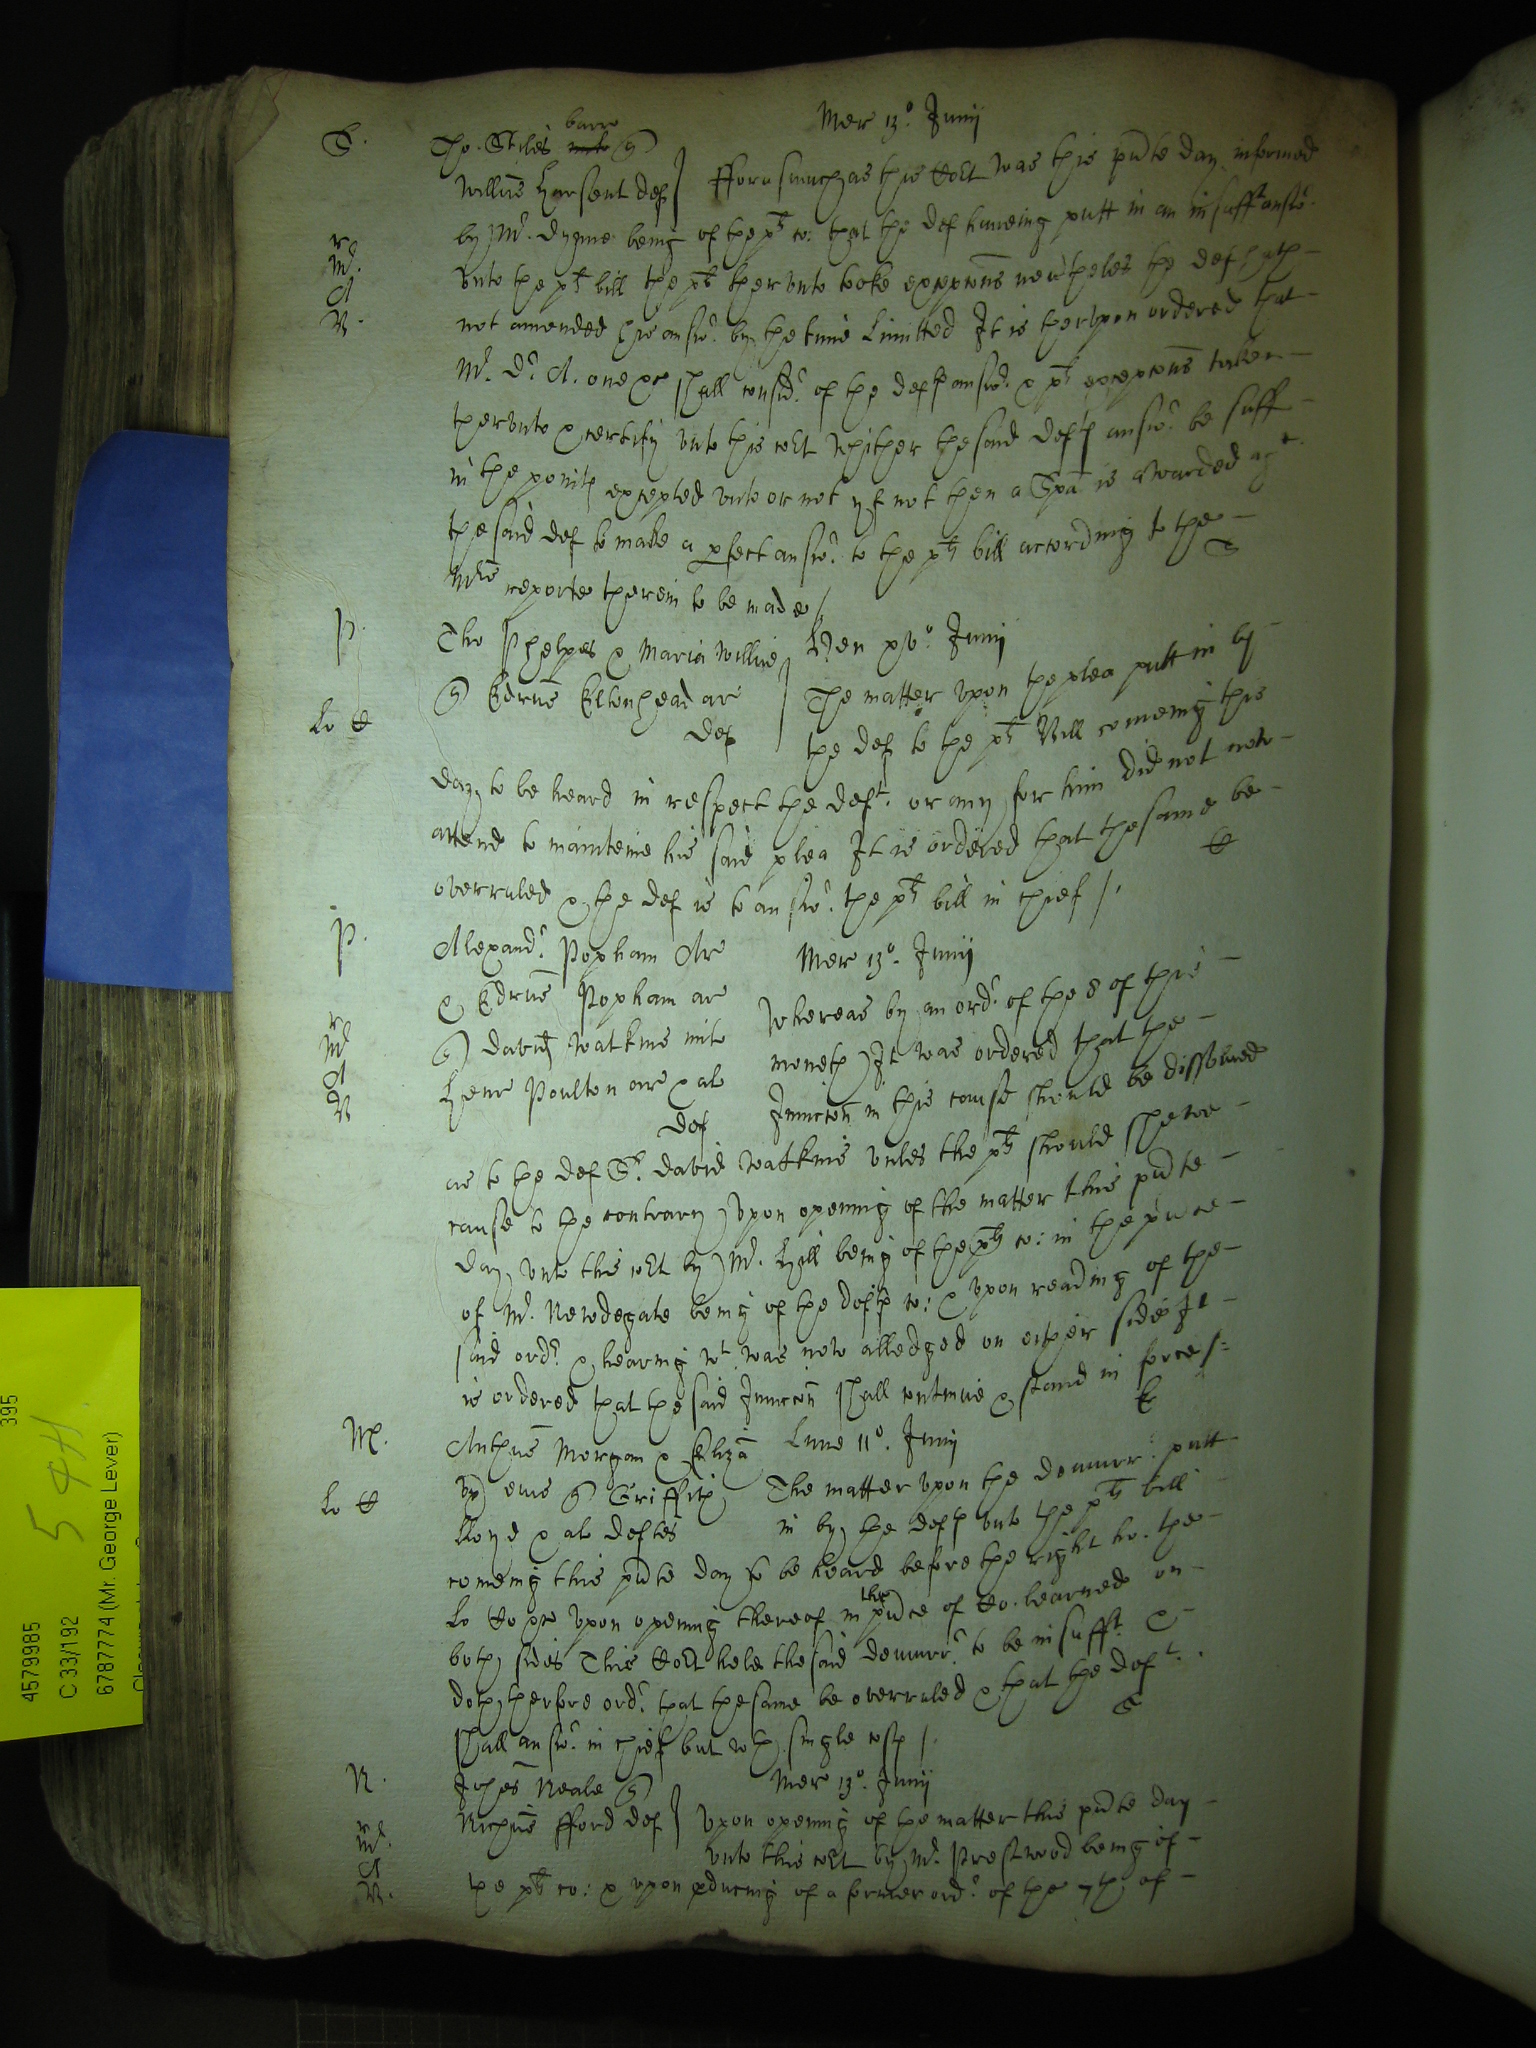 Mer 13o. Junij
S. Tho. Stiles barro q
Willus Harsent def fforasmuchas this Court was this pnte day informed
by Mr. Dygme being of the plts co: that the def haveing putt in an insufft answr.
Mr. unto the plts bill the plt therunto tooke excepcons nevrtheles the def hath
A not amended his answr. by the time limitted It is therupon ordered that
R. Mr. Dr. A. one &c shall considr. of the defts answr. & plts excepcons taken
therunto & certify unto this cort whither the said defts answr. be suff
in the points excepted unto or not yf not then a Spa is awarded agt.
the said def to make a pfect answr. to the plts bill according to the
Mrs reporte therein to be made / S
P. Tho Phelpes & Maria Willise Ven xvo. Junij
q Edrus Eltonhead ar The matter upon the plea putt in by
Lo C def the def to the plts Bill comeing this
day to be heard in respect the deft. or any for him did not now
attend to mainteine his said plea It is ordered that the same be
overruled & the def is to answr. the plts bill in chief /. C
P. Alexandr. Popham Are Mer 13o. Junij
& Edrus Popham ar Whereas by an ordr. of the 8 of this
Mr q David Watkins milo moneth It was ordered that the
A Henr Poulton are & al Iniuncon in this cause should be dissolved
R def
as to the def Sr. David Watkins unles the plts should shewe
cause to the contrary upon opening of the matter this pnte
day unto this cort by Mr. Hill being of the plts co: in the pnce
of Mr. Newdegate being of the defts co: & upon reading of the
said ordr. & hearing wt was now alledged on either side It
is ordered that the said Iniuncon shall continue & stand in force /: E
M. Anthus Morgan & Eliza Lune 11o. Junij
ux eius q Griffith The matter upon the demurr. putt
Lo C Lloyd & al deftes in by the defts unto the plts bill
comeing this pnte day to be heard before the right ho. the
Lo Co &c upon opening thereof in the pnce of Co. learned on
both sides This Cort held the said demurr. to be insufft. &
doth therfore ordr. that the same be overruled & that the deft.
shall answr. in chief but wth single costs /. S
R. Johes Neale q Mer 13o. Junij
Richus fford def upon opening of the matter this pnte day
Mr. unto this cort by Mr. Prestwood being of
A
R. the plts co: & upon pducing of a former ordr. of the 7th of
395
5 4H
4579985
C 33/192
6787774 (Mr. George Lever)